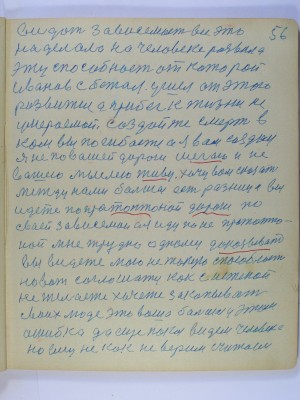 56
зависимост вы это
на делала на человека развила
эту способност от которой
Иванов с бежал ушел от этого
развития а прибег к жизни не
умераемой, создайте смерт в
ком вы погибаете а я вам создаю
я не по вашей дороги шегаю и не
вашею мыслею живу. хочу вам сказат
между нами балшая ест разница вы
идете по пратоптоной дороги по
своей зависемои а я иду по не протопто
ной мне трудно одному доказыват
вы видете мою не такую способност
но вот соглошатц как с не такой
не желаете хочете закапыват
самих людей это ваша балшая этому
ошибка да еще пока видем человека
но ему не как не верим считаем